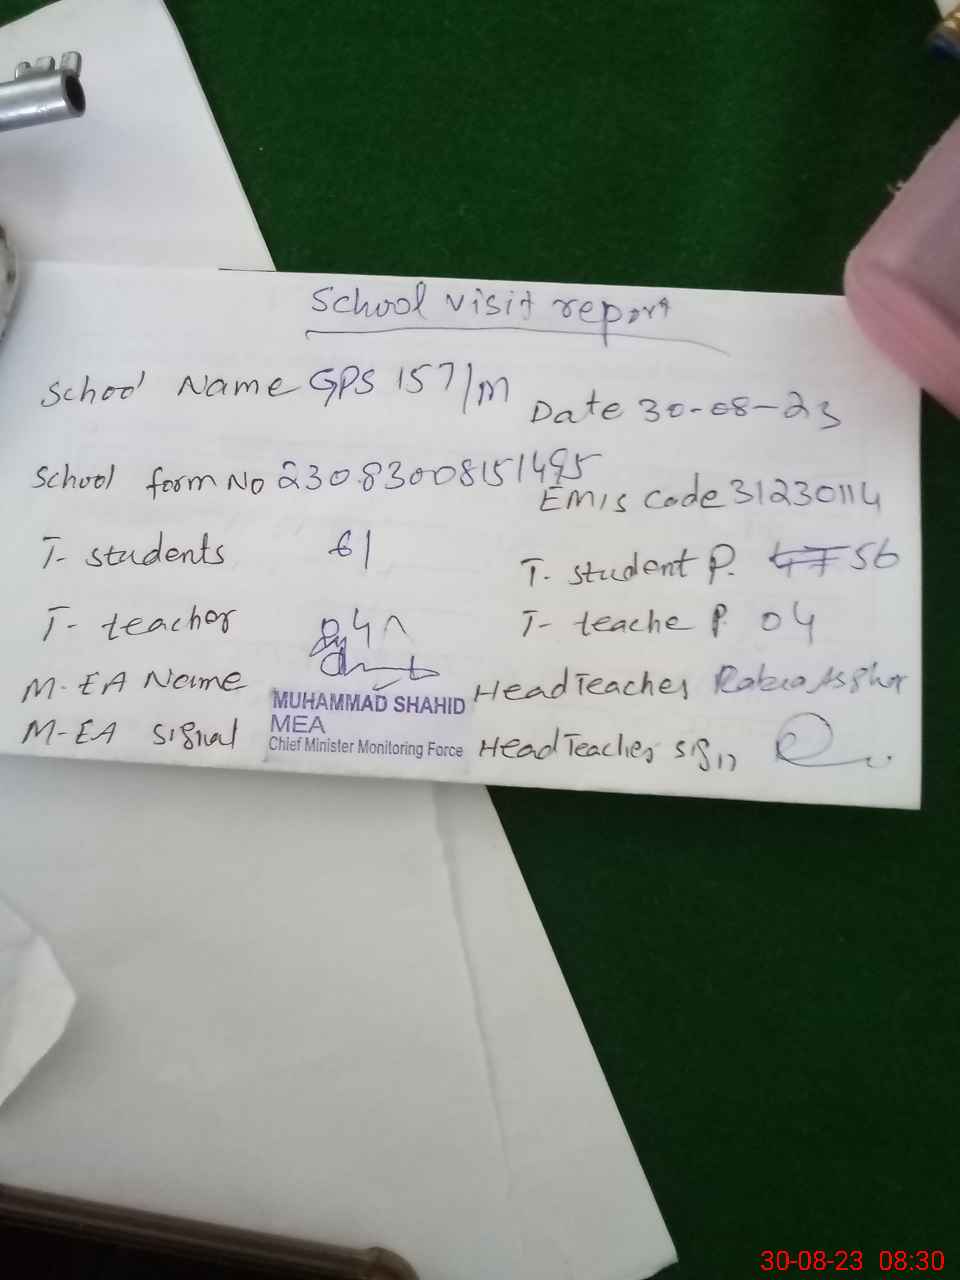 School visit report
School Name GPS 157/M Date 30-08-23
School form No 23083008151495 EMIS Code 31230114
T- students 61 T. student P. 56
T- teacher 04 T- teache P. 04
M-EA Name Head Teacher Rabia Asghar
MUHAMMAD SHAHID
MEA
M-EA signal Head Teacher sign
Chief Minister Monitoring Force
30-08-23 08:30